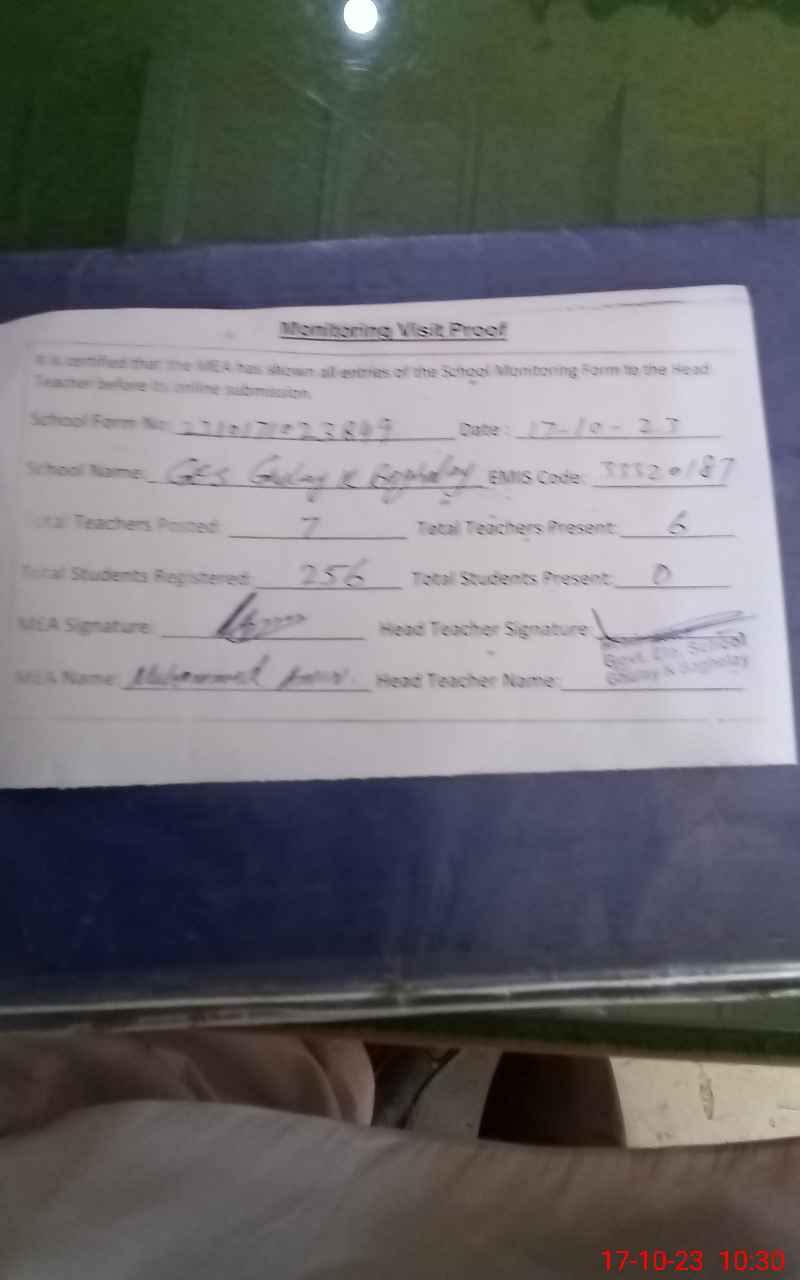 Monitoring Visit Proof
It is certified that the MEA has shown all entries of the School Monitoring Form to the Head
Teacher before its online submission.
School Form No: Date: 17-10-23
School Name: GES EMIS Code: 33320187
Total Teachers Posted: 7 Total Teachers Present: 6
Total Students Registered: 256 Total Students Present: 0
MEA Signature: Head Teacher Signature:
Govt. Ele. School
MEA Name: Muhammad Amin. Head Teacher Name:
17-10-23 10:30